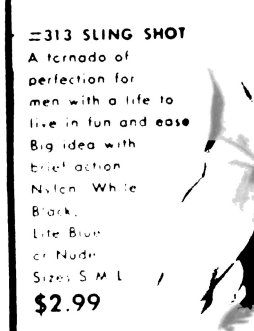 =313 SLING SHOT
A tornado of
perfection for
men with a life to
live in fun and ease
Big idea with
brief action
Nylon White
Black,
Lite Blue
or Nude
Sizes S M L
$2.99